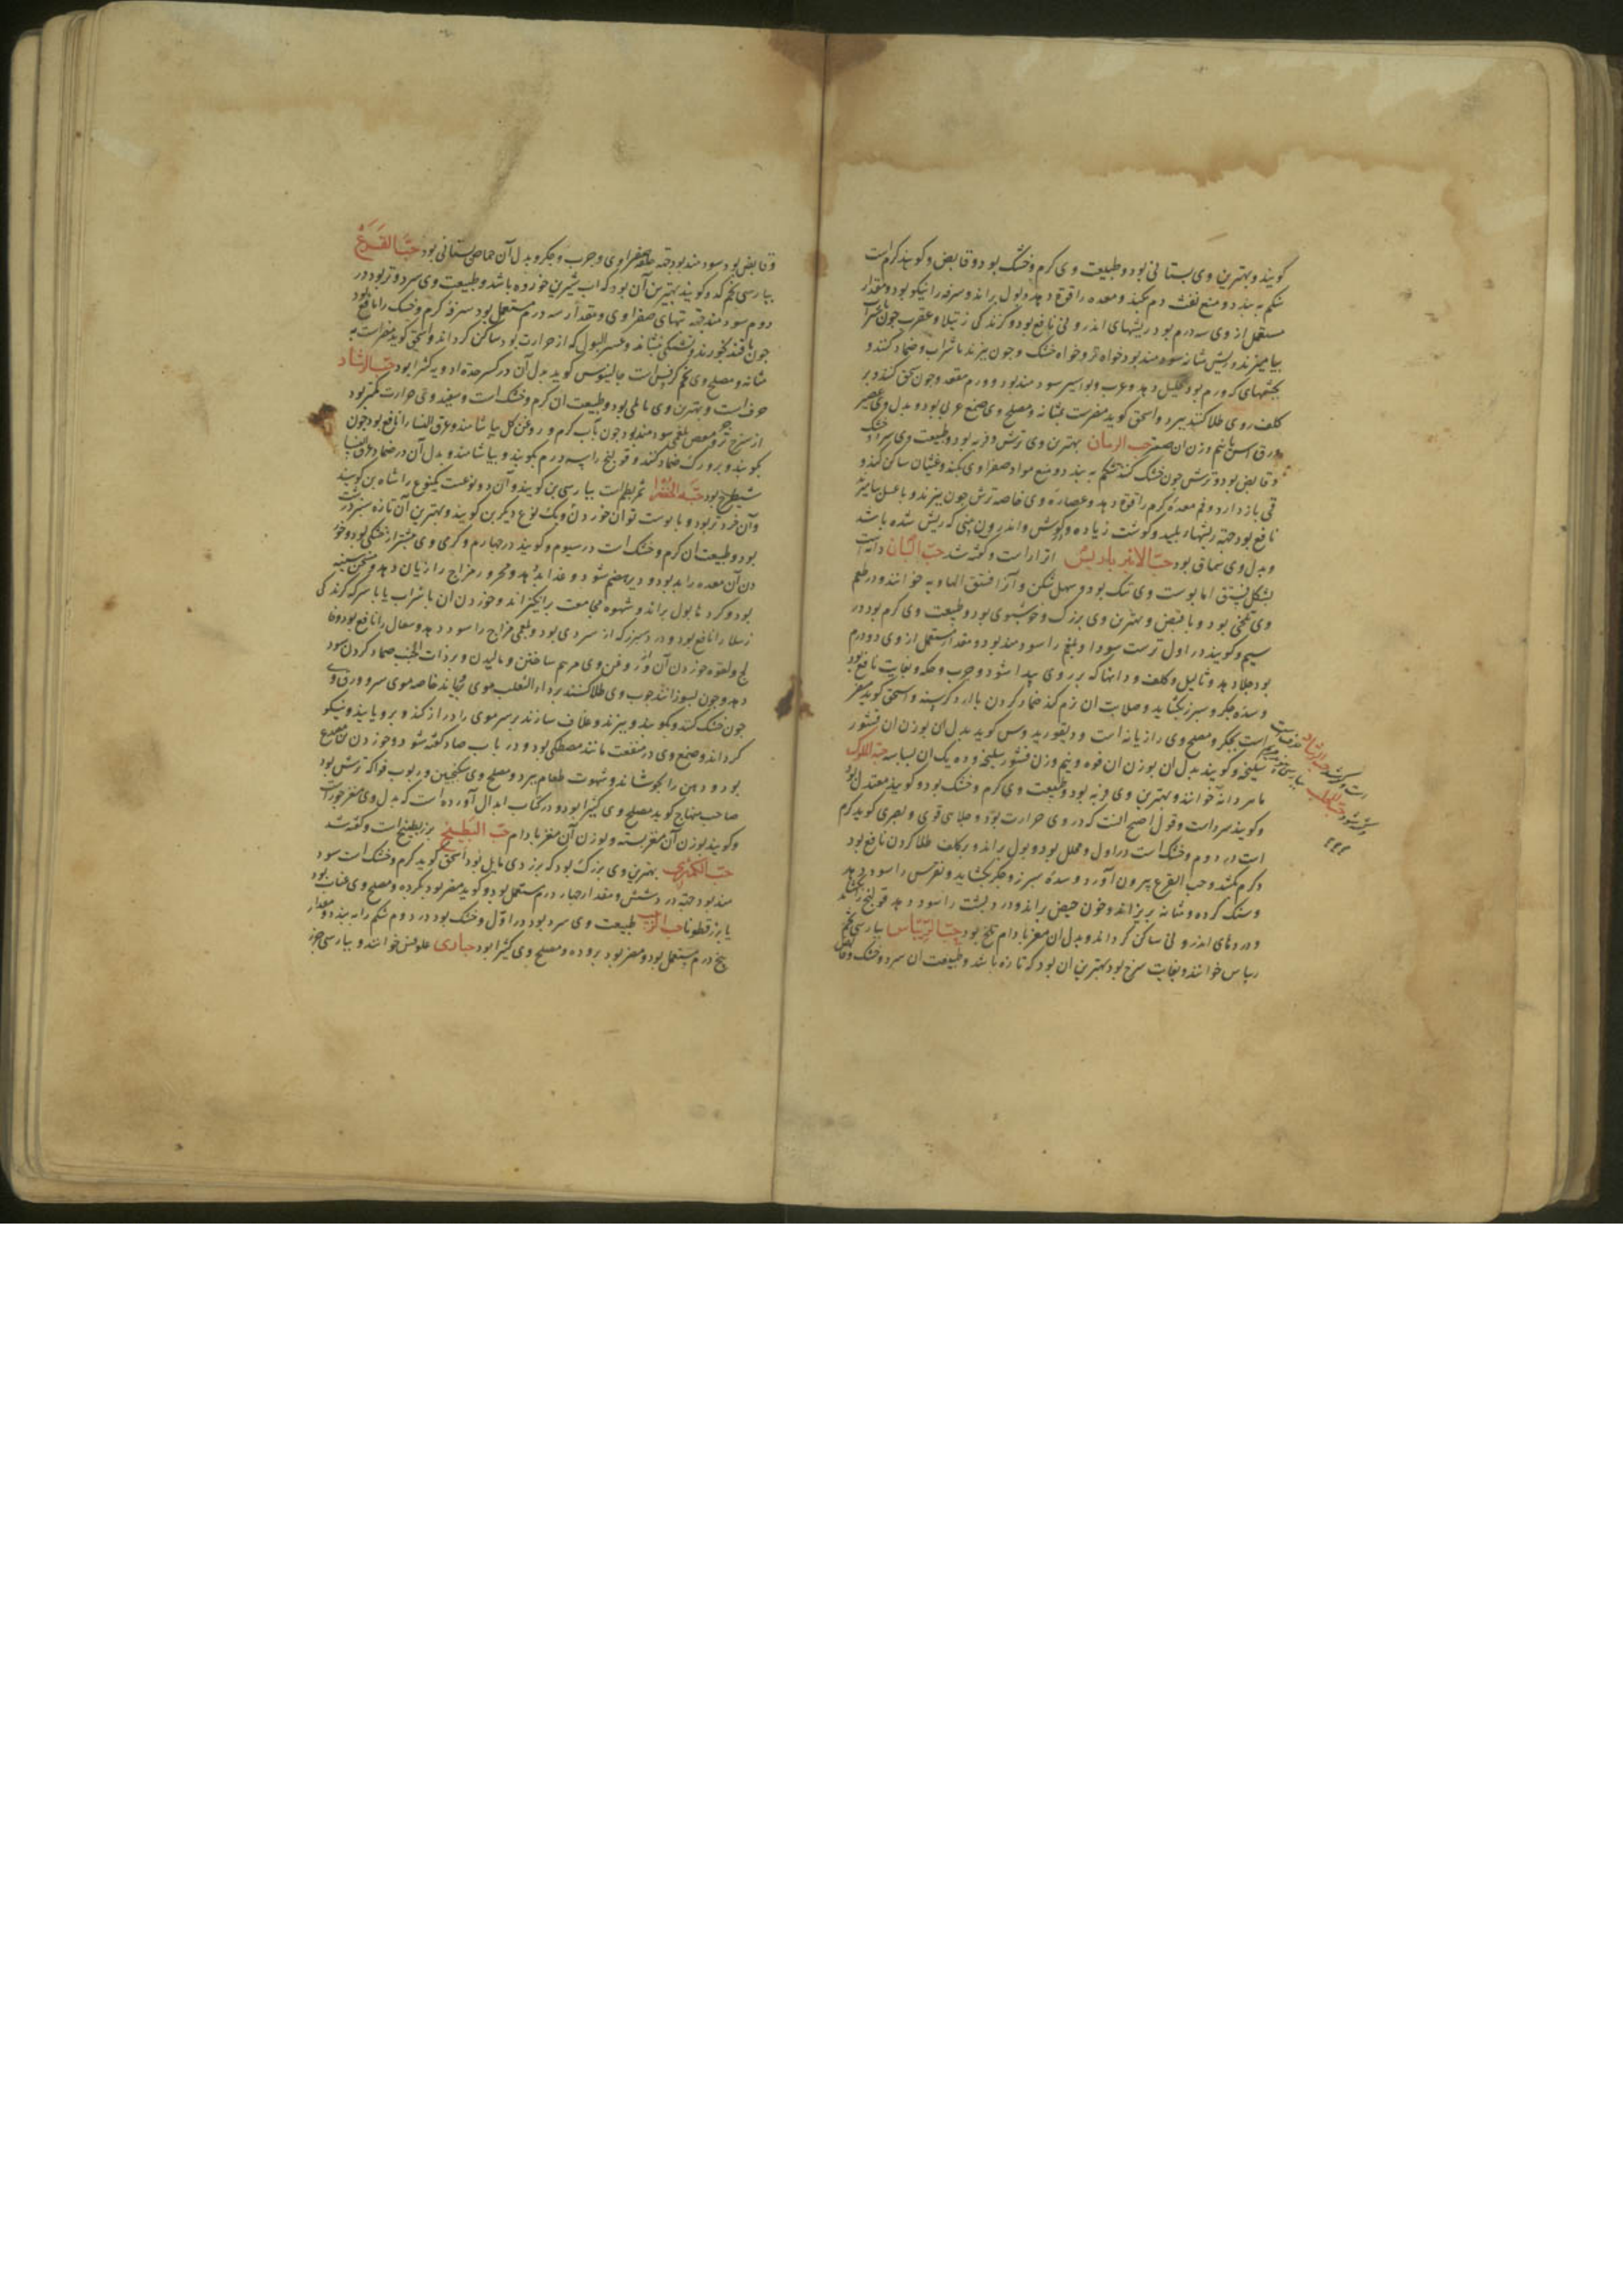 کویند و بهترین وی بستانی بود و طبیعت وی کرم و خشک بود و قابض و کویند کرم است
شکم به بندد و منع نفث دم بکند و معده را قوة دهد و بول براند و سرفه را نیکو بود و مقدار
مستعمل از وی سه درم بود ریشهای اندرونی نافع بود و کزندکی رتیلا و عقرب چون با شراب
بیامیزند و ریش مثانه سودمند بود خواه تر و خواه خشک و چون بپزند با شراب و ضماد کنند و
بجشمهای که ورم بود تحلیل دهد و غرب و بواسیر سودمند بود و ورم مقعد و چون سحق کنند و بر
کلف روی طلا کنند ببرد و اسحق کوید مضر است بمثانه و مصلح وی صمغ عربی بود و بدل وی عصیر
ورق آس بنیم وزن ان صعتر حب الرمان بهترین وی ترش و فربه بود و طبیعت وی سرد و خشک
و قابض بود و ترش چون خشک کنند شکم به بندد و منع مواد صفراوی بکند و غثیان ساکن کند و
قی باز دارد و فم معدهٔ کرم را قوة دهد و عصاره وی خاصه ترش چون بپزند و با عسل بیامیزند
نافع بود جهة ریشهاء پلید و کوشت زیاده و کوش و اندرون بینی که ریش شده باشد
و بدل وی سماق بود حب الانبرباریس اترار است و کفته شد حب البان دانه ایست
بشکل فستق اما پوست وی تنک بود و سهل شکن و آنرا فستق الهاویه خوانند و در طعم
وی تلخی بود و با قبض و بهترین وی بزرک و خوشبوی بود و طبیعت وی کرم بود در
سیم و کویند در اول ترست سودا و بلغم را سودمند بود و مقدار مستعمل از وی دو درم
بود جلا دهد و ثالیل و کلف و دانها که بر روی پیدا شود و جرب و حکه و بغایت نافع بود
و سدهٔ جکر و سپرز بکشاید و صلابت ان نرم کند ضماد کردن با آرد کرسنه و اسحق کوید مضر
است بجکر و مصلح وی رازیانه است و دیقوریدوس کوید بدل ان بوزن ان قشور
سلیخه و کویند بدل ان بوزن ان فوه و نیم وزن قشور سلیخه و ده یک ان بسباسه حب الملوک
ماهودانه خوانند و بهترین وی فربه بود و طبیعت وی کرم و خشک بود و کویند معتدل بود
و کویند سرد است و قول اصح آنست که در وی حرارت بود و جلای قوی و بصری کوید کرم
است در دوم و خشک است در اول و محلل بود و بول براند و بر کلف طلا کردن نافع بود
و کرم بکشد و حب القرع بیرون آورد و سدهٔ سپرز و جکر بکشاید و نقرس را سود دهد
و سنک کرده و مثانه بریزاند و خون حیض براند و درد پشت را سود دهد قولنج بکشاید
و دردهای اندرونی ساکن کرداند و بدل ان مغز بادام تلخ بود حب الریباس بپارسی تخم
ریباس خوانند و بغایت سرخ بود بهترین ان بود که تازه باشد و طبیعت ان سرد و خشک و قابض
و قابض بود سودمند بود جهة صفراوی و جرب و جکر و بدل آن حماض بستانی بود حب القرع
بپارسی تخم کدو کویند بهترین آن بود که آب شیرین خورده باشد و طبیعت وی سرد و تر بود در
دوم سودمند جهة تبهای صفراوی و مقدار سه درم مستعمل بود سرفهٔ کرم و خشک را نافع بود
چون با قند بخورند و تشنکی بنشاند و عسر البول که از حرارت بود ساکن کرداند و اسحق کوید مضر است به
مثانه و مصلح وی تخم کرفس است جالینوس کوید بدل آن در کسر حدة ادویه کثیرا بود حب الرشاد
حرف است و بهترین وی بابلی بود و طبیعت ان کرم و خشک است و سفید وی حرارت کمتر بود
از سرخ و مغص بلغمی سودمند بود چون بآب کرم و روغن کل بیاشامند و عرق النسا را نافع بود چون
بکوبند و بر ورک ضماد کنند و قولنج را سه درم بکوبند و بیاشامند و بدل آن در ضماد عرق النسا
شیطرج بود حبة الخضرا ثمر بطم است بپارسی بن کویند و آن دو نوعست یکنوع را شاه بن کویند
و آن خردتر بود و با پوست توان خوردن و یک نوع دیکر بن کویند و بهترین آن تازه سبز است
بود و طبیعت ان کرم و خشک است در سیوم و کویند در چهارم و کرمی وی بیشتر از خشکی بود و خور
دن آن معده را بد بود و دیر هضم شود و غذا بد دهد و محرور مزاج را زیان دهد و مسخن سینه
بود و کرده تا بول براند و شهوة مجامعت برانکیزاند و خوردن ان با شراب یا با سرکه کزندکی
رتیلا را نافع بود و درد سپرز که از سردی بود و بلغمی مزاج را سود دهد و سعال را نافع بود و فا
لج و لقوه خوردن آن و از روغن وی مرهم ساختن و مالیدن و بر ذات الجنب ضماد کردن سود
دهد و چون بسوزانند چوب وی طلا کنند بر داء الثعلب موی برویاند خاصه موی سر و ورق وی
چون خشک کنند و بکوبند و بپزند و غلاف سازند بر سر موی را دراز کند و برویاند و نیکو
کرداند و صمغ وی در منفعت مانند مصطکی بود و در باب صاد کفته شود و خوردن مصدع
بود و دهن را بجوشاند و شهوت طعام ببرد و مصلح وی سکنجبین و ربوب فواکه ترش بود
صاحب منهاج کوید مصلح وی کثیرا بود و در کتاب ابدال آورده است که بدل وی مغز جوز است
و کویند بوزن آن مغز پسته و بوزن آن مغز بادام حب البطیخ بزر بطیخ است و کفته شد
حب الکمثری بهترین وی بزرک بود که بزردی مایل بود اسحق کوید کرم و خشک است سود
مند بود جهة درد شش و مقدار چهار درم مستعمل بود و کویند مضر بود بکرده و مصلح وی عناب بود
یا بزر قطونا حب الزبیب طبیعت وی سرد بود در اول و خشک بود در دوم شکم را به بندد و مقدار
پنج درم مستعمل بود و مضر بود بروده و مصلح وی کثیرا بود حباری علوش خوانند و بپارسی چرز